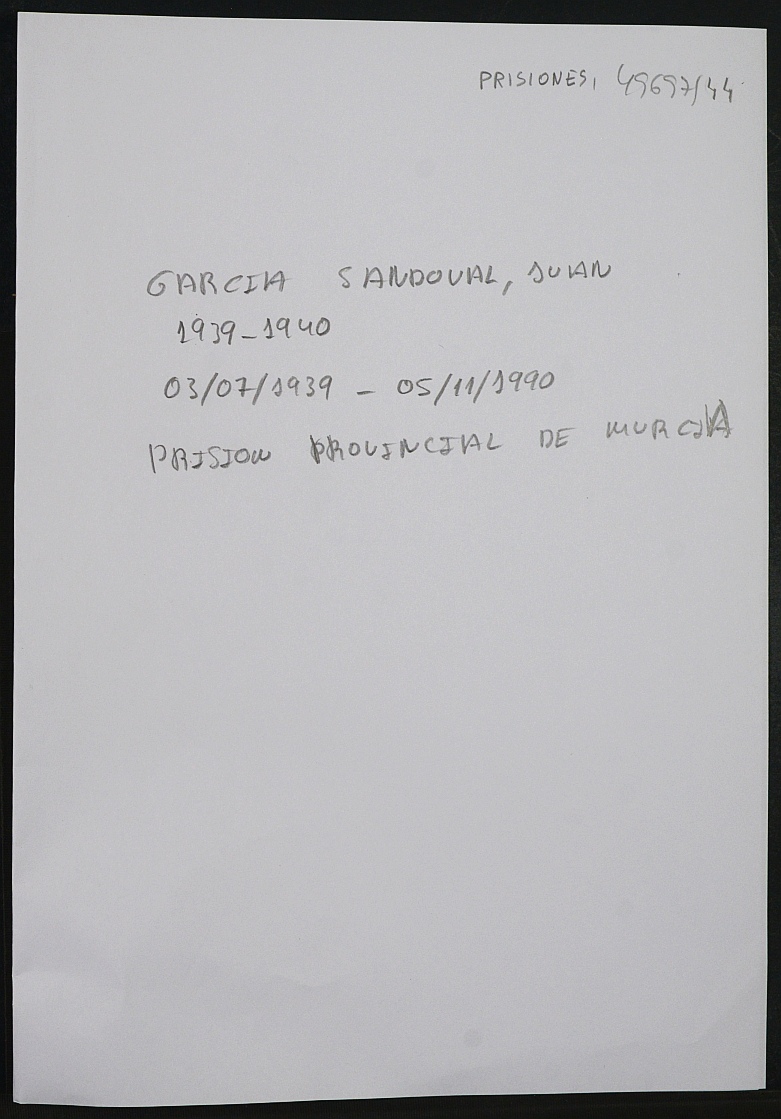 PRISIONES, 49697/44
GARCIA SANDOVAL, JUAN
1939-1940
03/07/1939 - 05/11/1990
PRISION PROVINCIAL DE MURCIA